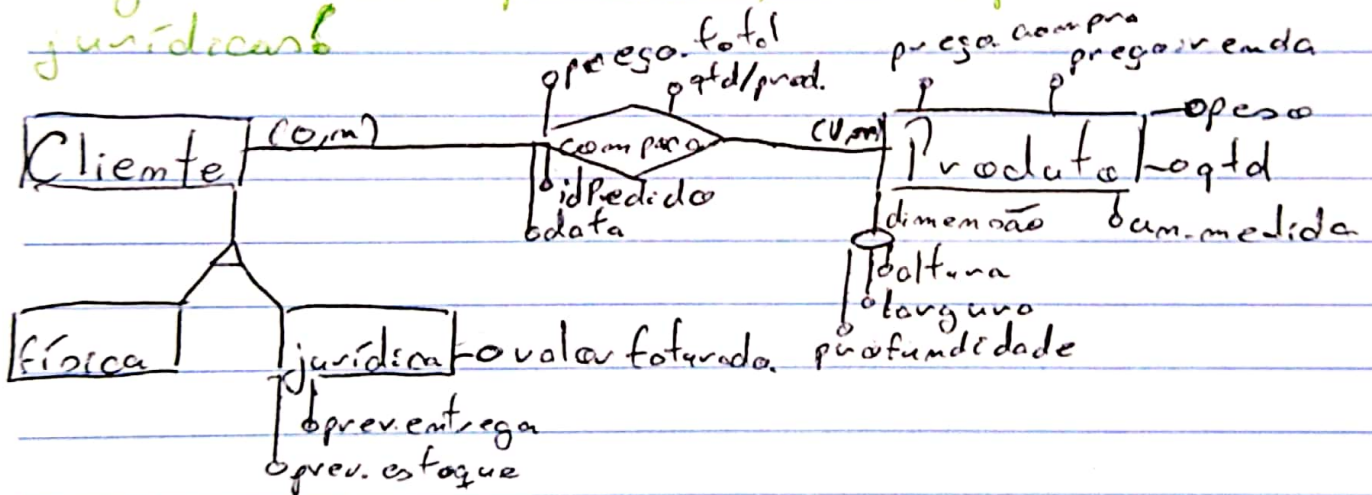 jurídicas
preço.total
qtd/prod.
preço compra
preço venda
peso
Cliente
(0,n)
compra
Produto
qtd
idPedido
data
dimensão
un.medida
altura
largura
profundidade
física
jurídica
valor faturado.
prev.entrega
prev. estoque